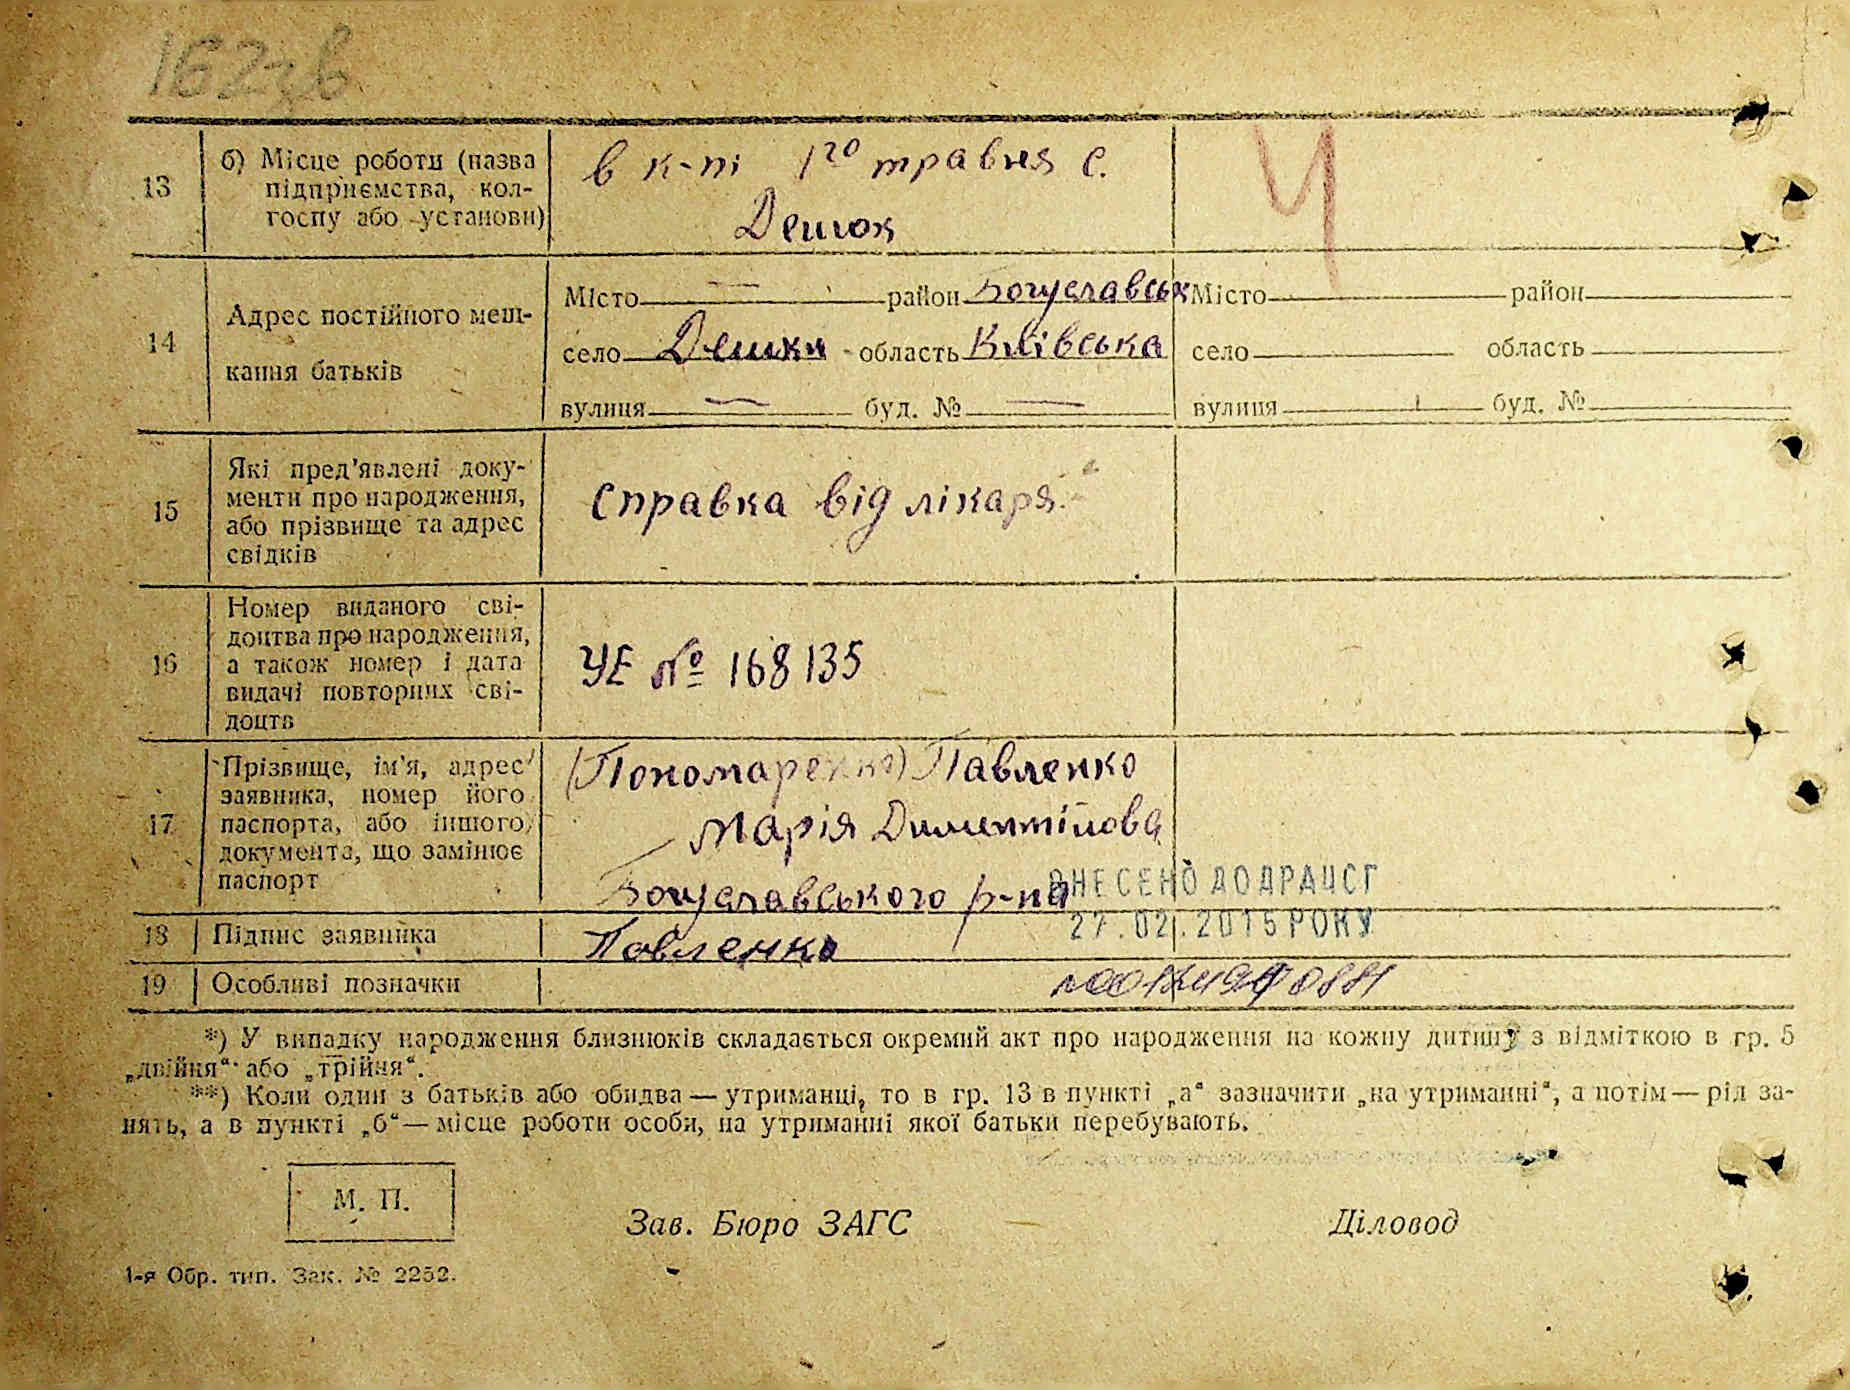 162зв
13 б) Місце роботи (назва
підприємства, кол-
госпу або установи)
в к-пі 1го травня с.
Дешок
Ч
14 Адрес постійного меш-
кання батьків
Місто — район Богуславськ
село Дешки область Київська
вулиця — буд. № —
Місто район
село область
вулиця буд. №
15 Які пред'явлені доку-
менти про народження,
або прізвище та адрес
свідків
Справка від лікаря
16 Номер виданого сві-
доцтва про народження,
а також номер і дата
видачі повторних сві-
доцтв
УЕ № 168135
17 Прізвище, ім'я, адрес
заявника, номер його
паспорта, або іншого
документа, що замінює
паспорт
(Пономаренко) Павленко
Марія
Богуславського р-на
ВНЕСЕНО ДО ДРАЦСГ
27.02.2015 РОКУ
18 Підпис заявника
Павленко
19 Особливі позначки
*) У випадку народження близнюків складається окремий акт про народження на кожну дитину з відміткою в гр. 5
„двійня“ або „трійня“.
**) Коли один з батьків або обидва — утриманці, то в гр. 13 в пункті „а“ зазначити „на утриманні“, а потім — рід за-
нять, а в пункті „б“ — місце роботи особи, на утриманні якої батьки перебувають.
М. П.
Зав. Бюро ЗАГС Діловод
1-я Обр. тип. Зак. № 2252.